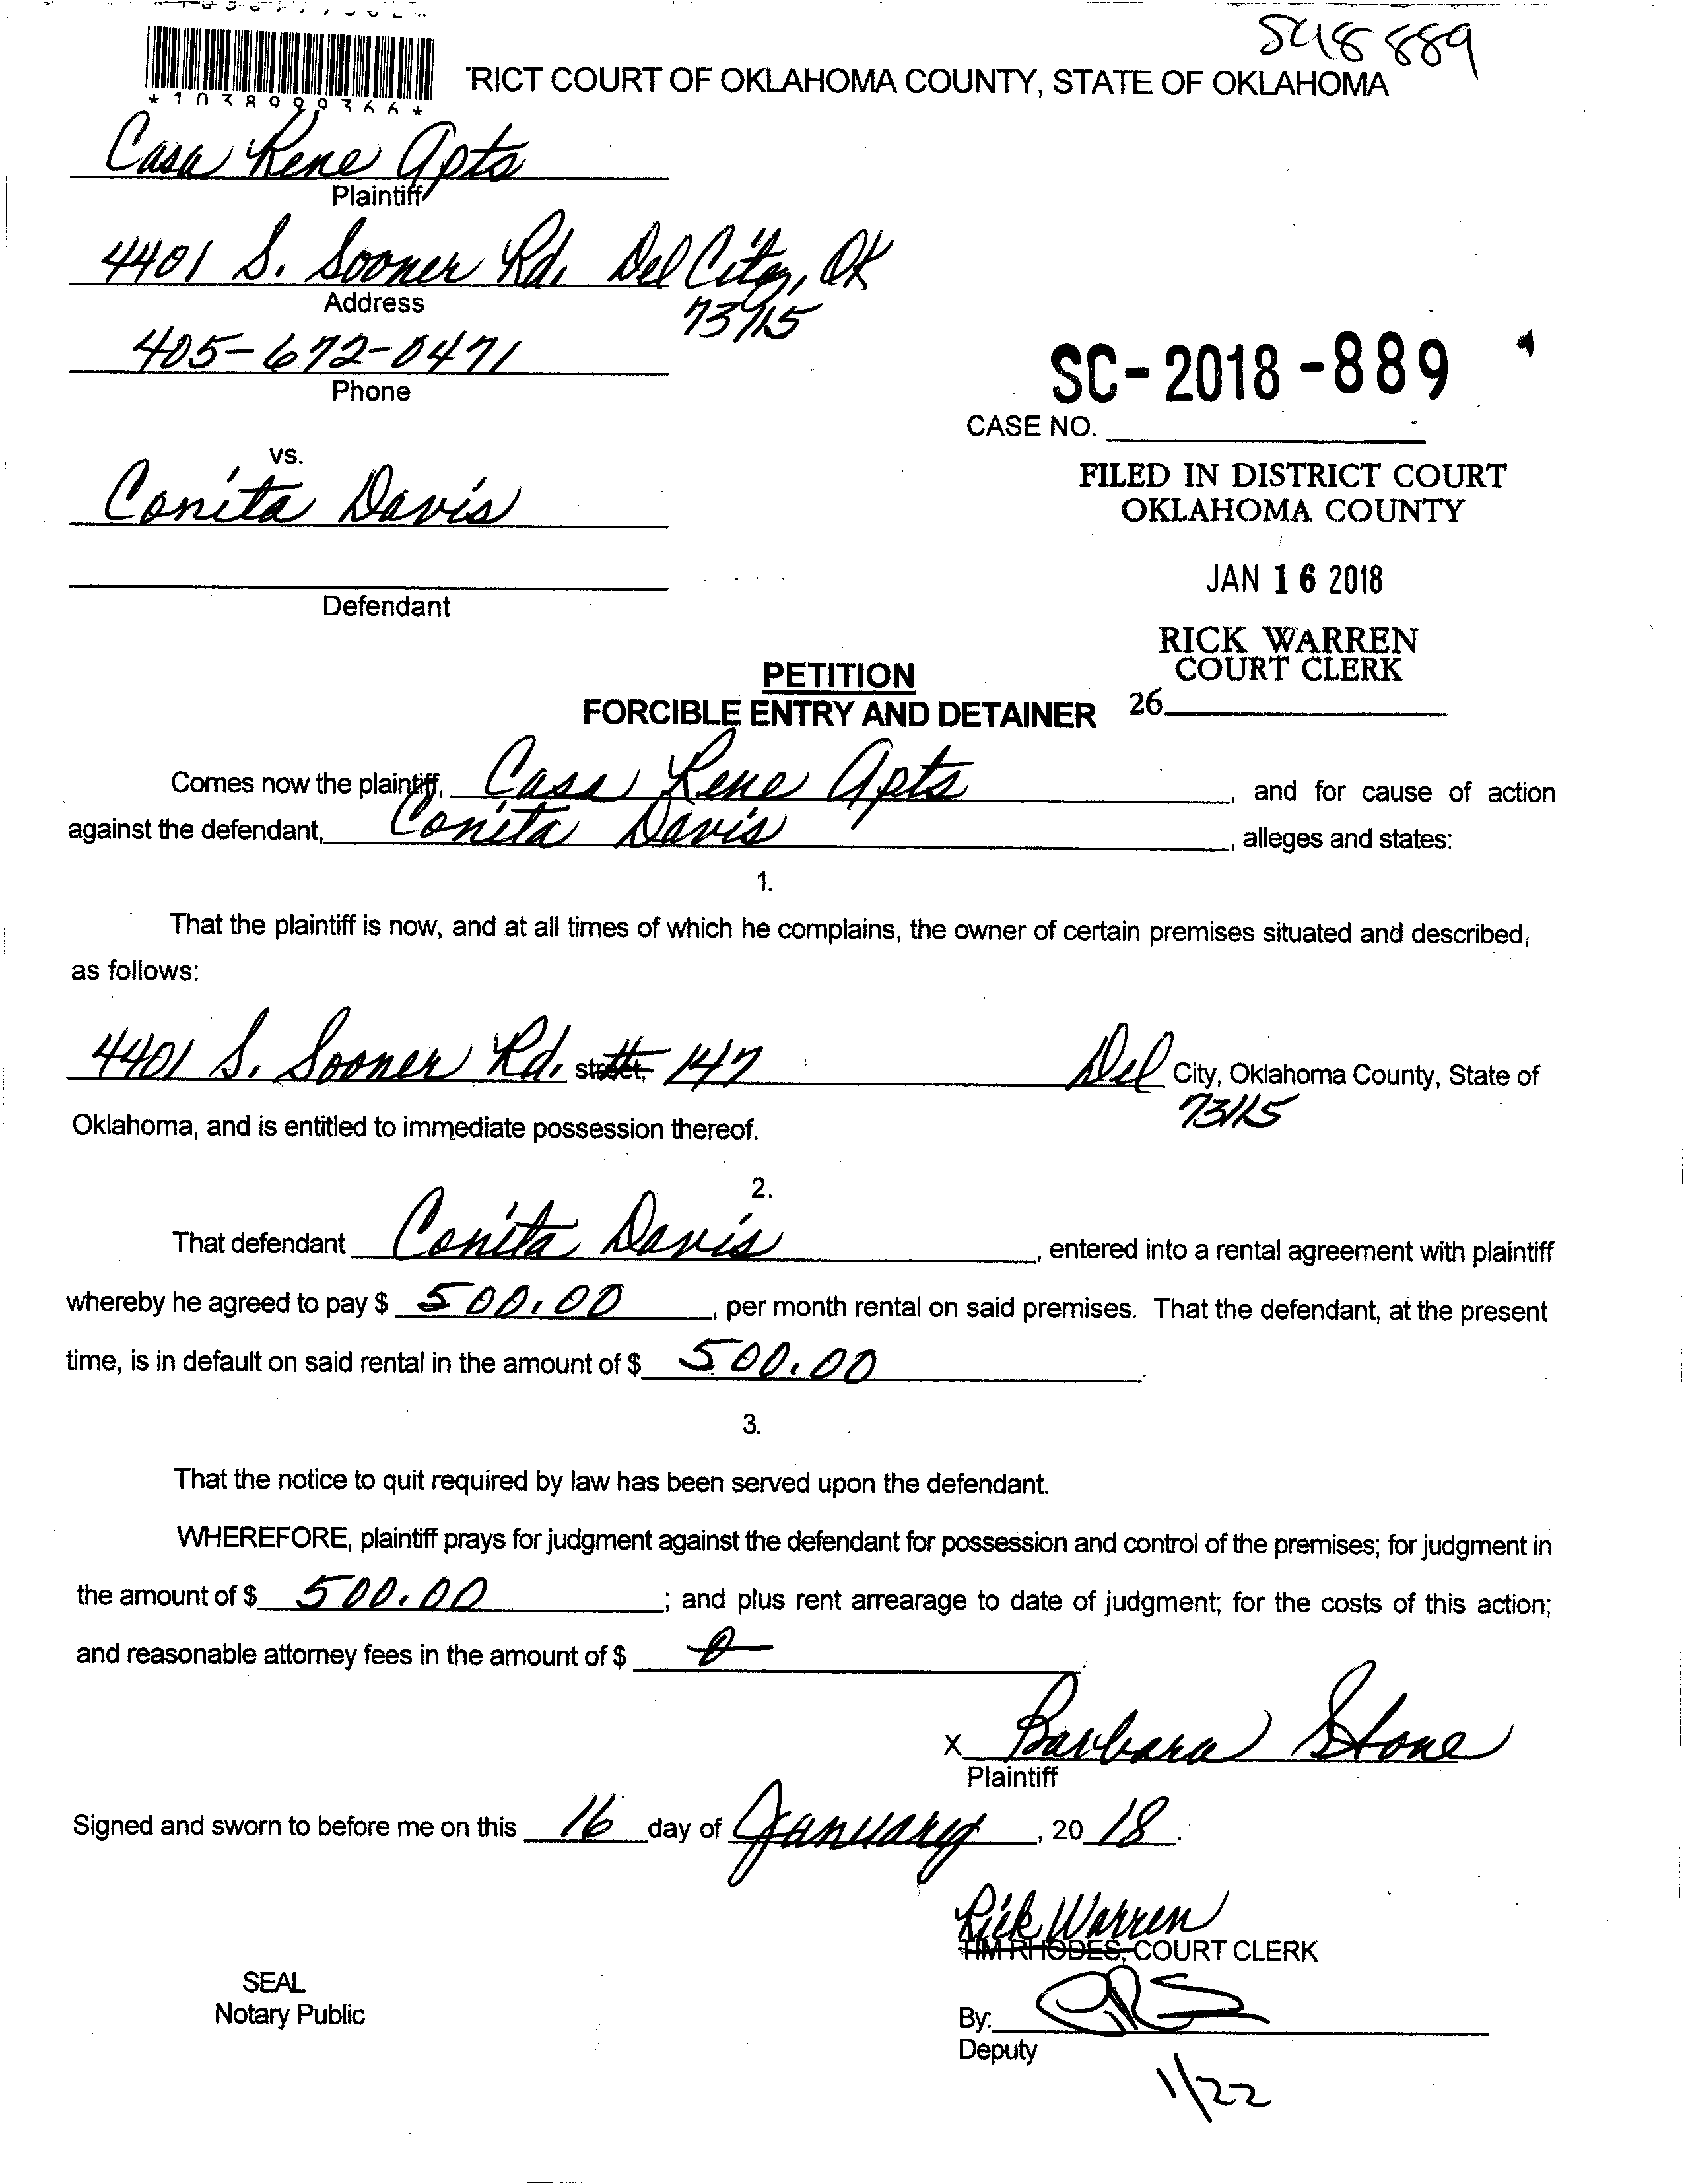 SC18 889
*1038999366*
RICT COURT OF OKLAHOMA COUNTY, STATE OF OKLAHOMA
Casa Rene Apts
Plaintiff
4401 S. Sooner Rd. Del City, OK
Address
73115
405-672-0471
Phone
SC-2018-889
CASE NO.
vs.
FILED IN DISTRICT COURT
OKLAHOMA COUNTY
Conita Davis
JAN 16 2018
Defendant
RICK WARREN
COURT CLERK
26
PETITION
FORCIBLE ENTRY AND DETAINER
Comes now the plaintiff, Casa Rene Apts, and for cause of action
against the defendant, Conita Davis, alleges and states:
1.
That the plaintiff is now, and at all times of which he complains, the owner of certain premises situated and described,
as follows:
4401 S. Sooner Rd. street, 147 Del City, Oklahoma County, State of
73115
Oklahoma, and is entitled to immediate possession thereof.
2.
That defendant Conita Davis, entered into a rental agreement with plaintiff
whereby he agreed to pay $ 500.00, per month rental on said premises. That the defendant, at the present
time, is in default on said rental in the amount of $ 500.00.
3.
That the notice to quit required by law has been served upon the defendant.
WHEREFORE, plaintiff prays for judgment against the defendant for possession and control of the premises; for judgment in
the amount of $ 500.00; and plus rent arrearage to date of judgment; for the costs of this action;
and reasonable attorney fees in the amount of $ 0.
X Barbara Stone
Plaintiff
Signed and sworn to before me on this 16 day of January, 20 18.
Rick Warren
TIM RHODES, COURT CLERK
SEAL
Notary Public
By:
Deputy
1/22